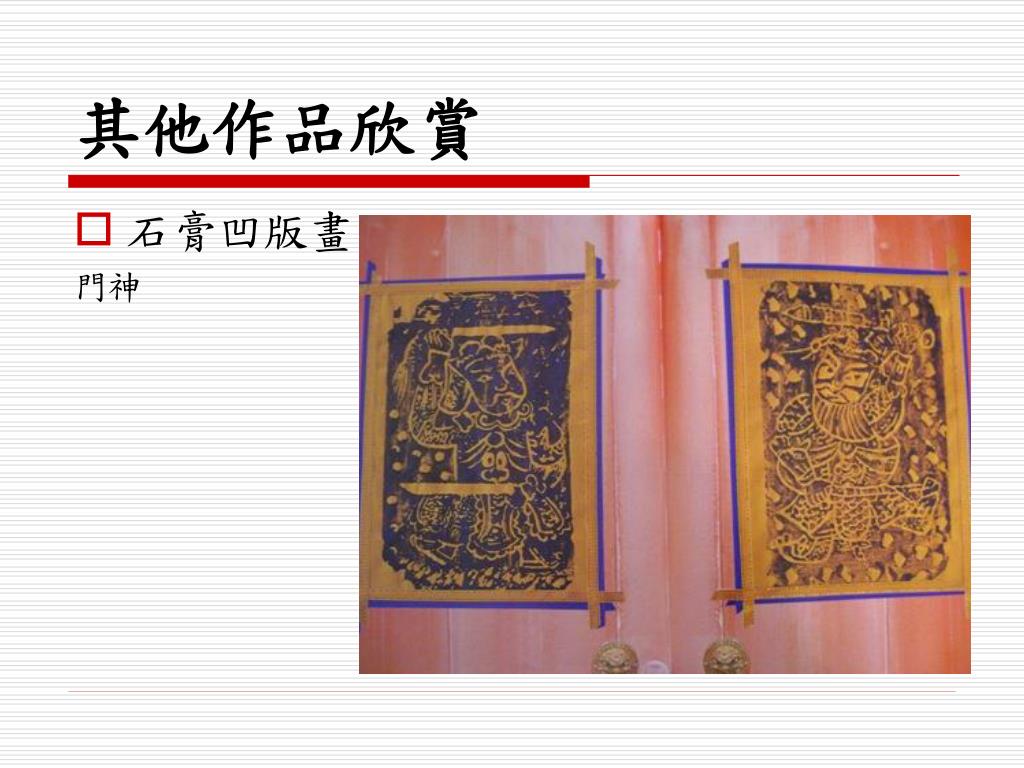 其他作品欣賞
石膏凹版畫
門神